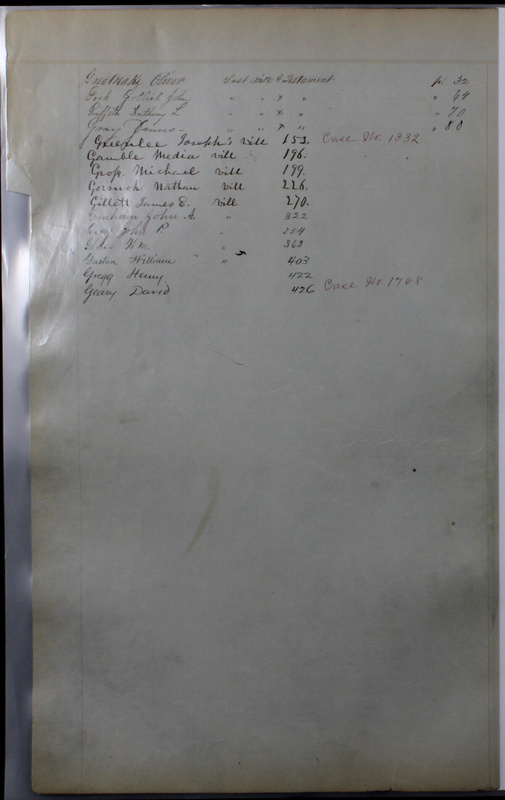 Oliver Last Will & Testament p. 32
Gotlieb John " " " " " 64
Griffith Anthony L " " " " " 70
Gray James " " " " " 88
Greenlee Joseph's Will 153. Case No. 1332
Gamble Media Will 196.
Grop Michael Will 199.
Nathan Will 226.
Gillett James E. Will 270.
Graham John A. " 322
John P " 354
Wm. " 362
Gaston William " 403
Gregg Henry 422
Geary David 426 Case No 1768